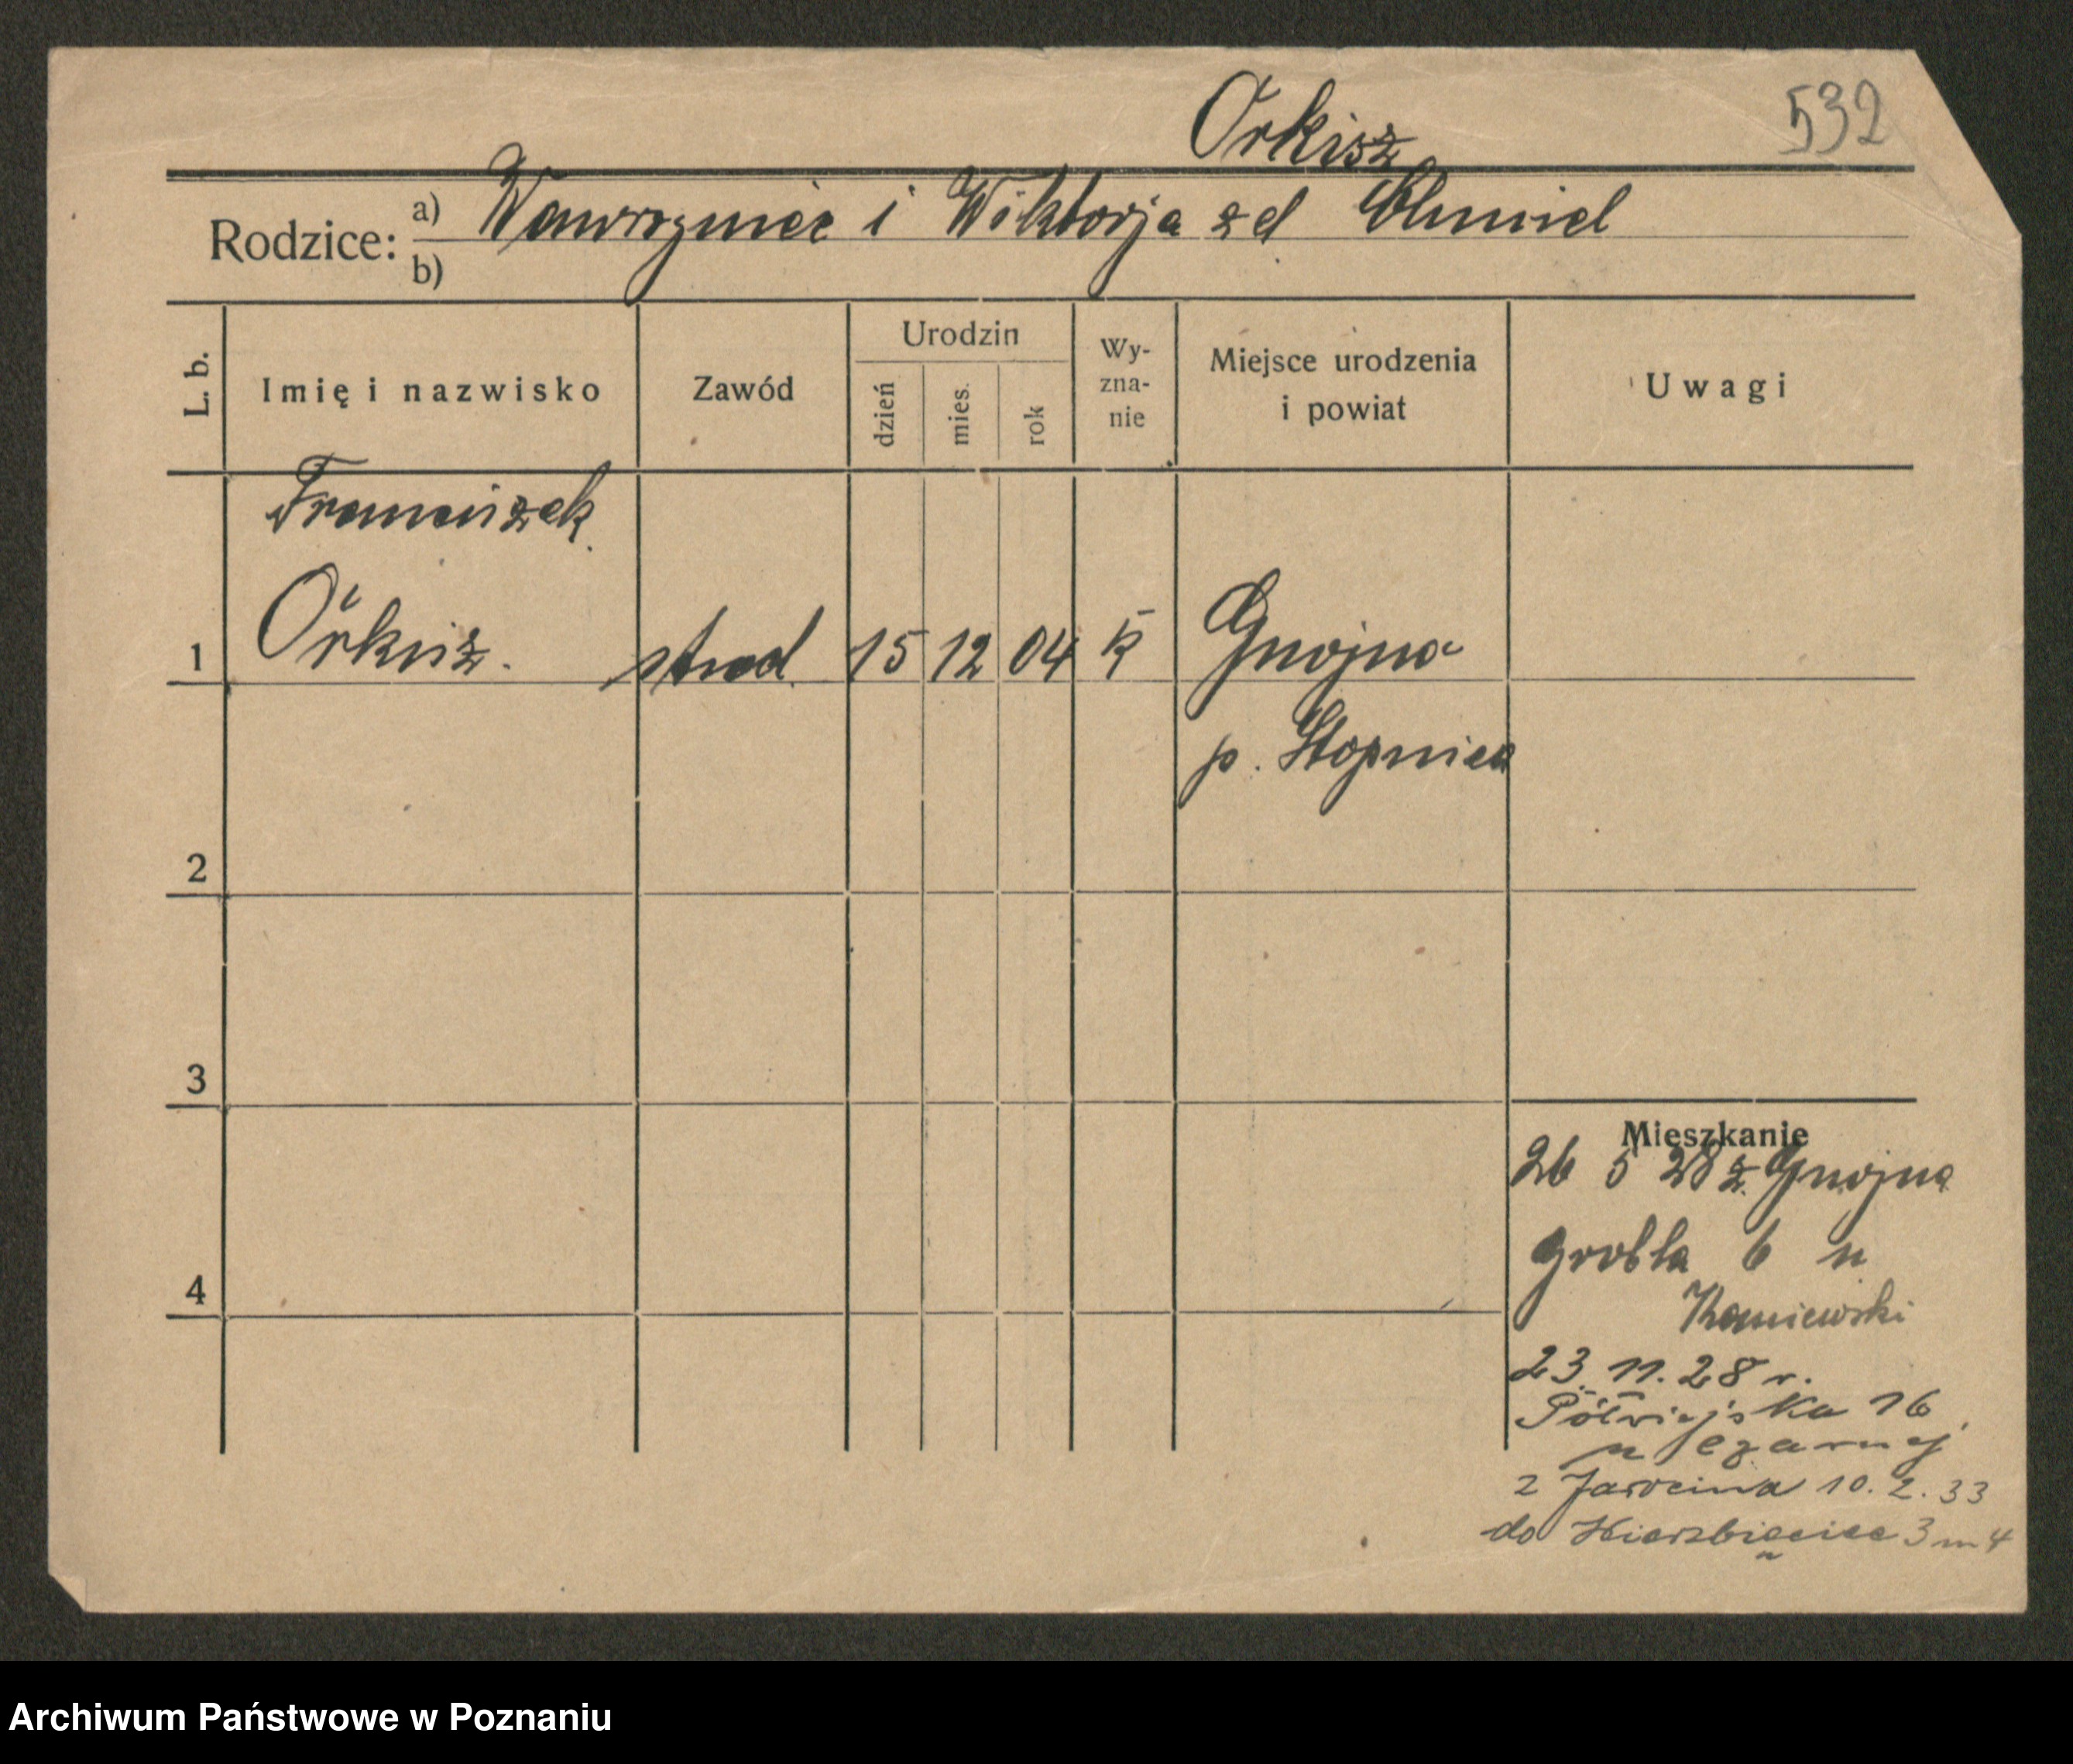 Orkisz
532
Rodzice: a) Wawrzyniec i Wiktorja z d Chmiel
b)
L. b.
Imię i nazwisko
Zawód
Urodzin
dzień
mies.
rok
Wy-
zna-
nie
Miejsce urodzenia
i powiat
Uwagi
Franciszek
1 Orkisz. stud. 15 12 04 k Gnojno
p. Stopnica
2
3
4
Mieszkanie
26 5 28 z Gnojna
Grobla 6 u
23. 11. 28 r.
Półwiejska 16
u Czarnej
z Jarocina 10. 2. 33
do Wierzbięcice 3 m 4
Archiwum Państwowe w Poznaniu